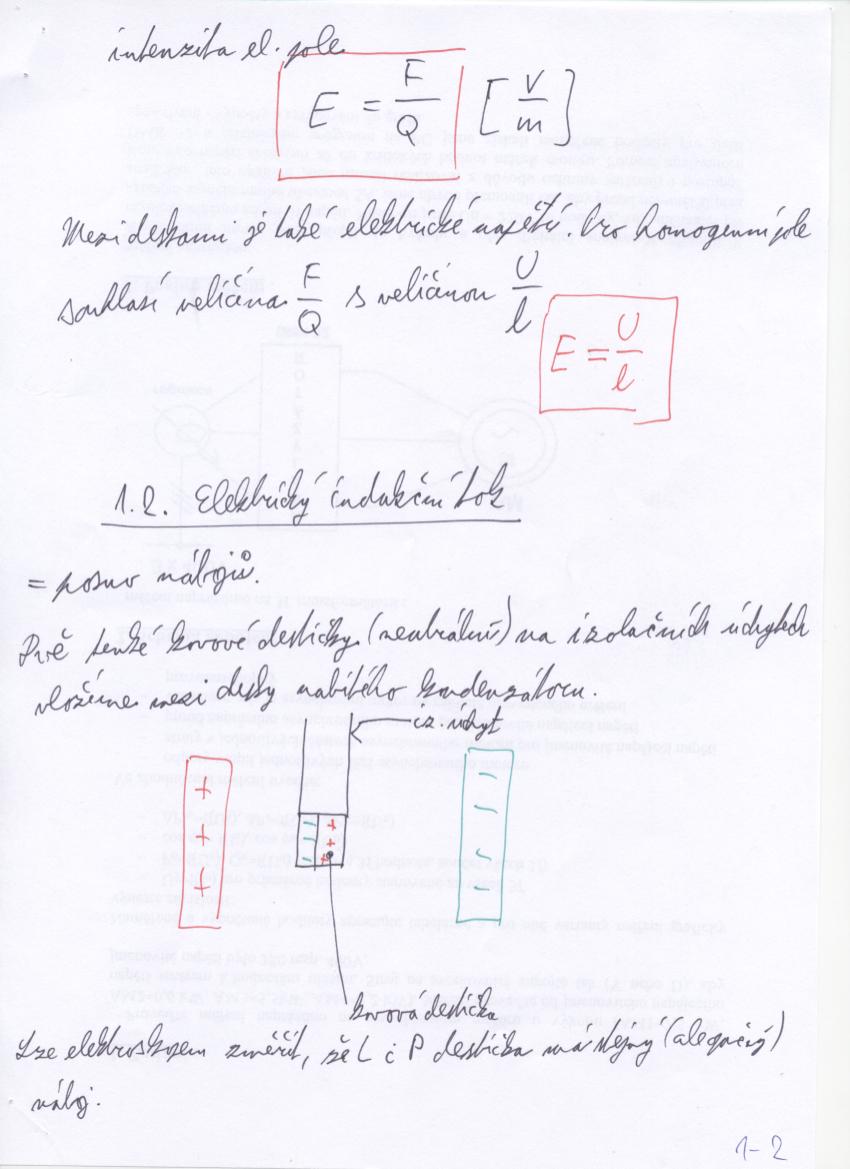 intenzita el. pole
E = F/Q [V/m]
Mezi deskami je také elektrické napětí. Pro homogenní pole
souhlasí veličina F/Q s veličinou U/l
E = U/l
1.2. Elektrický indukční tok
= posuv nábojů.
Dvě tenké kovové destičky (neutrální) na izolačních úchytech
vložíme mezi desky nabitého kondenzátoru.
iz. úchyt
+ - + -
+ - + -
+ - + -
-
kovová destička
Lze elektroskopem změřit, že L i P destička má stejný (ale opačný)
náboj.
1-2